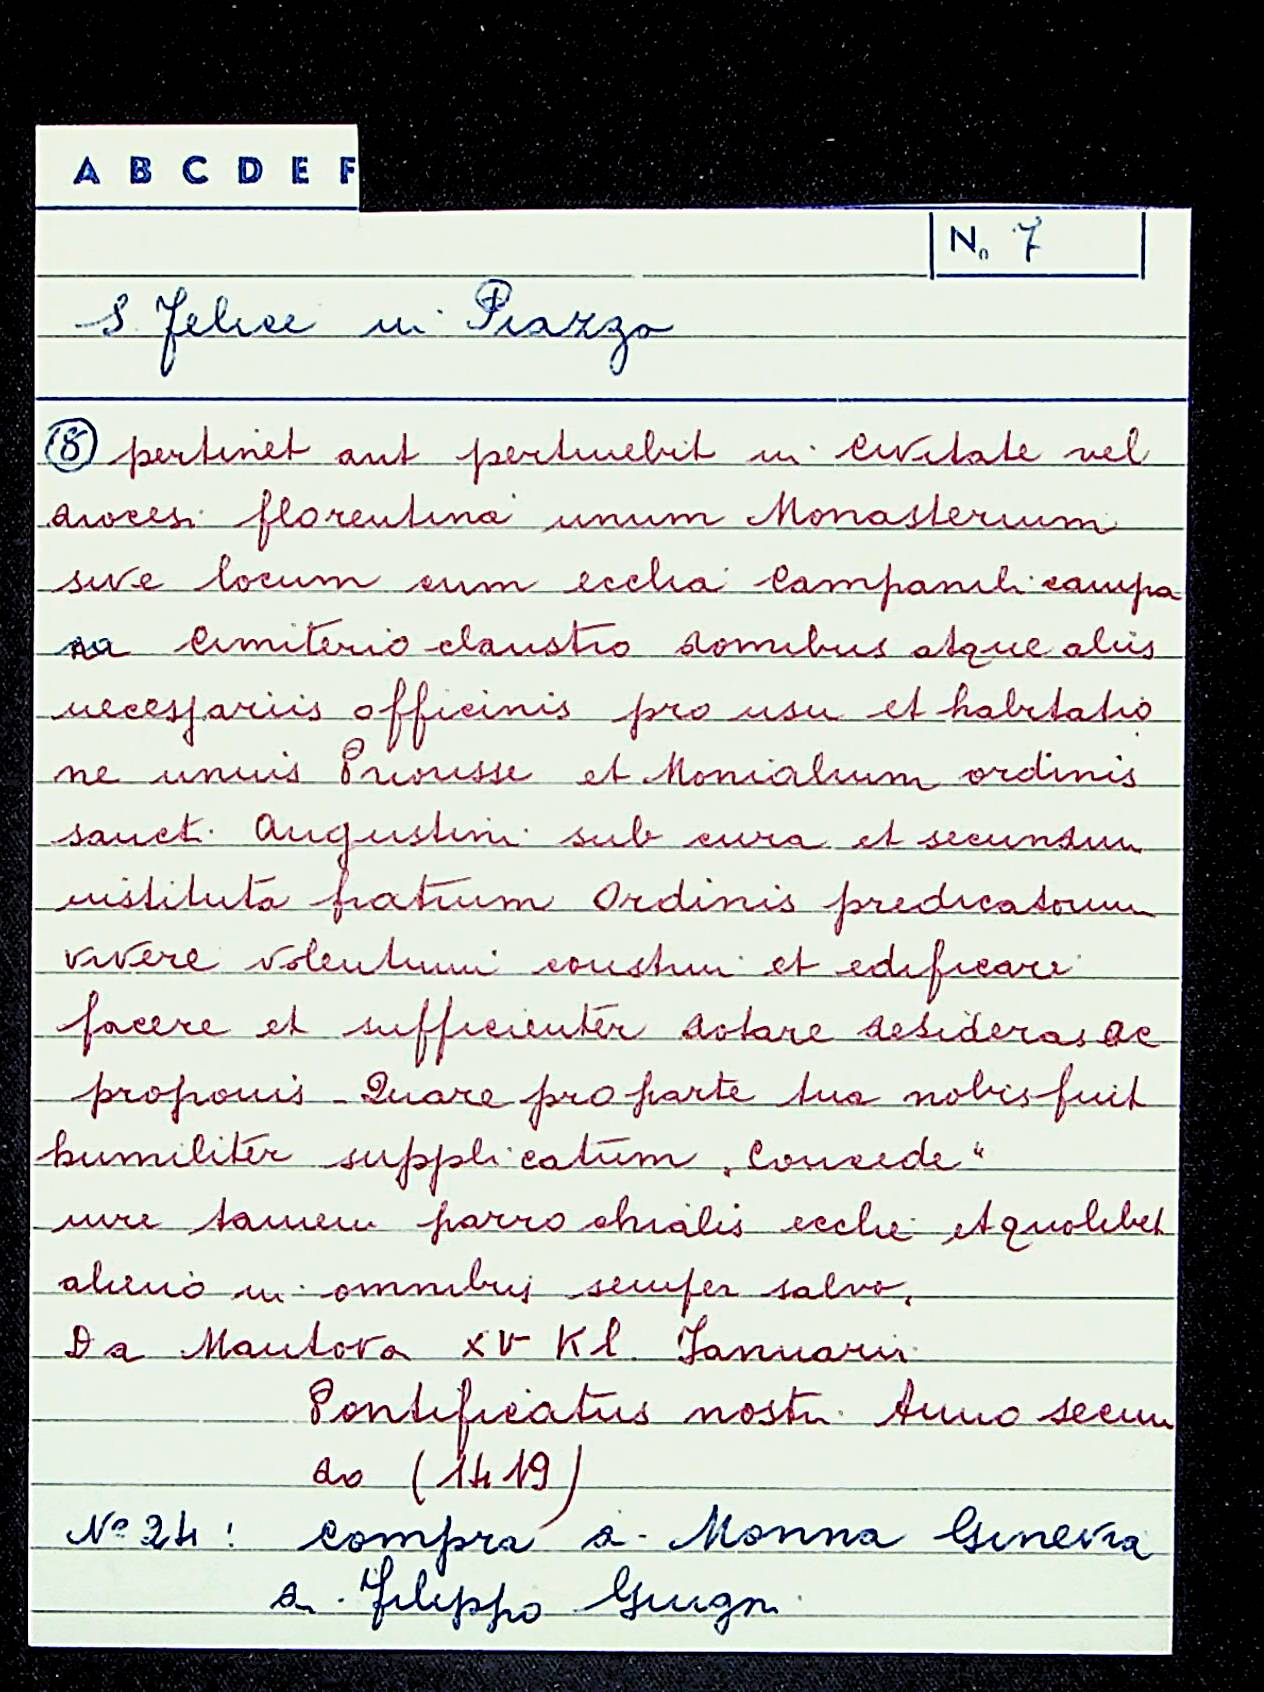 A B C D E F
N. 7
S. Felice in Piazza
(8) pertinet aut pertinebit in civitate vel
diocesi florentina unum Monasterium
sive locum cum ecclia Campanili campa
na Cimiterio claustro domibus atque aliis
necessariis officinis pro usu et habitatio
ne unius Priorisse et Monialium ordinis
sanct. Augustini sub cura et secundum
instituta fratrum Ordinis predicatorum
vivere volentium construi et edificari
facere et sufficienter dotare desideras ac
proponis - Quare pro parte tua nobis fuit
humiliter supplicatum. Concede"
iure tamen parrochialis ecclie et quolibet
alieno in omnibus semper salvo.
Da Mantova XV Kl. Januarii
Pontificatus nostri Anno secun
do (1419)
N° 24: compra di Monna Ginevra
di Filippo Giugni